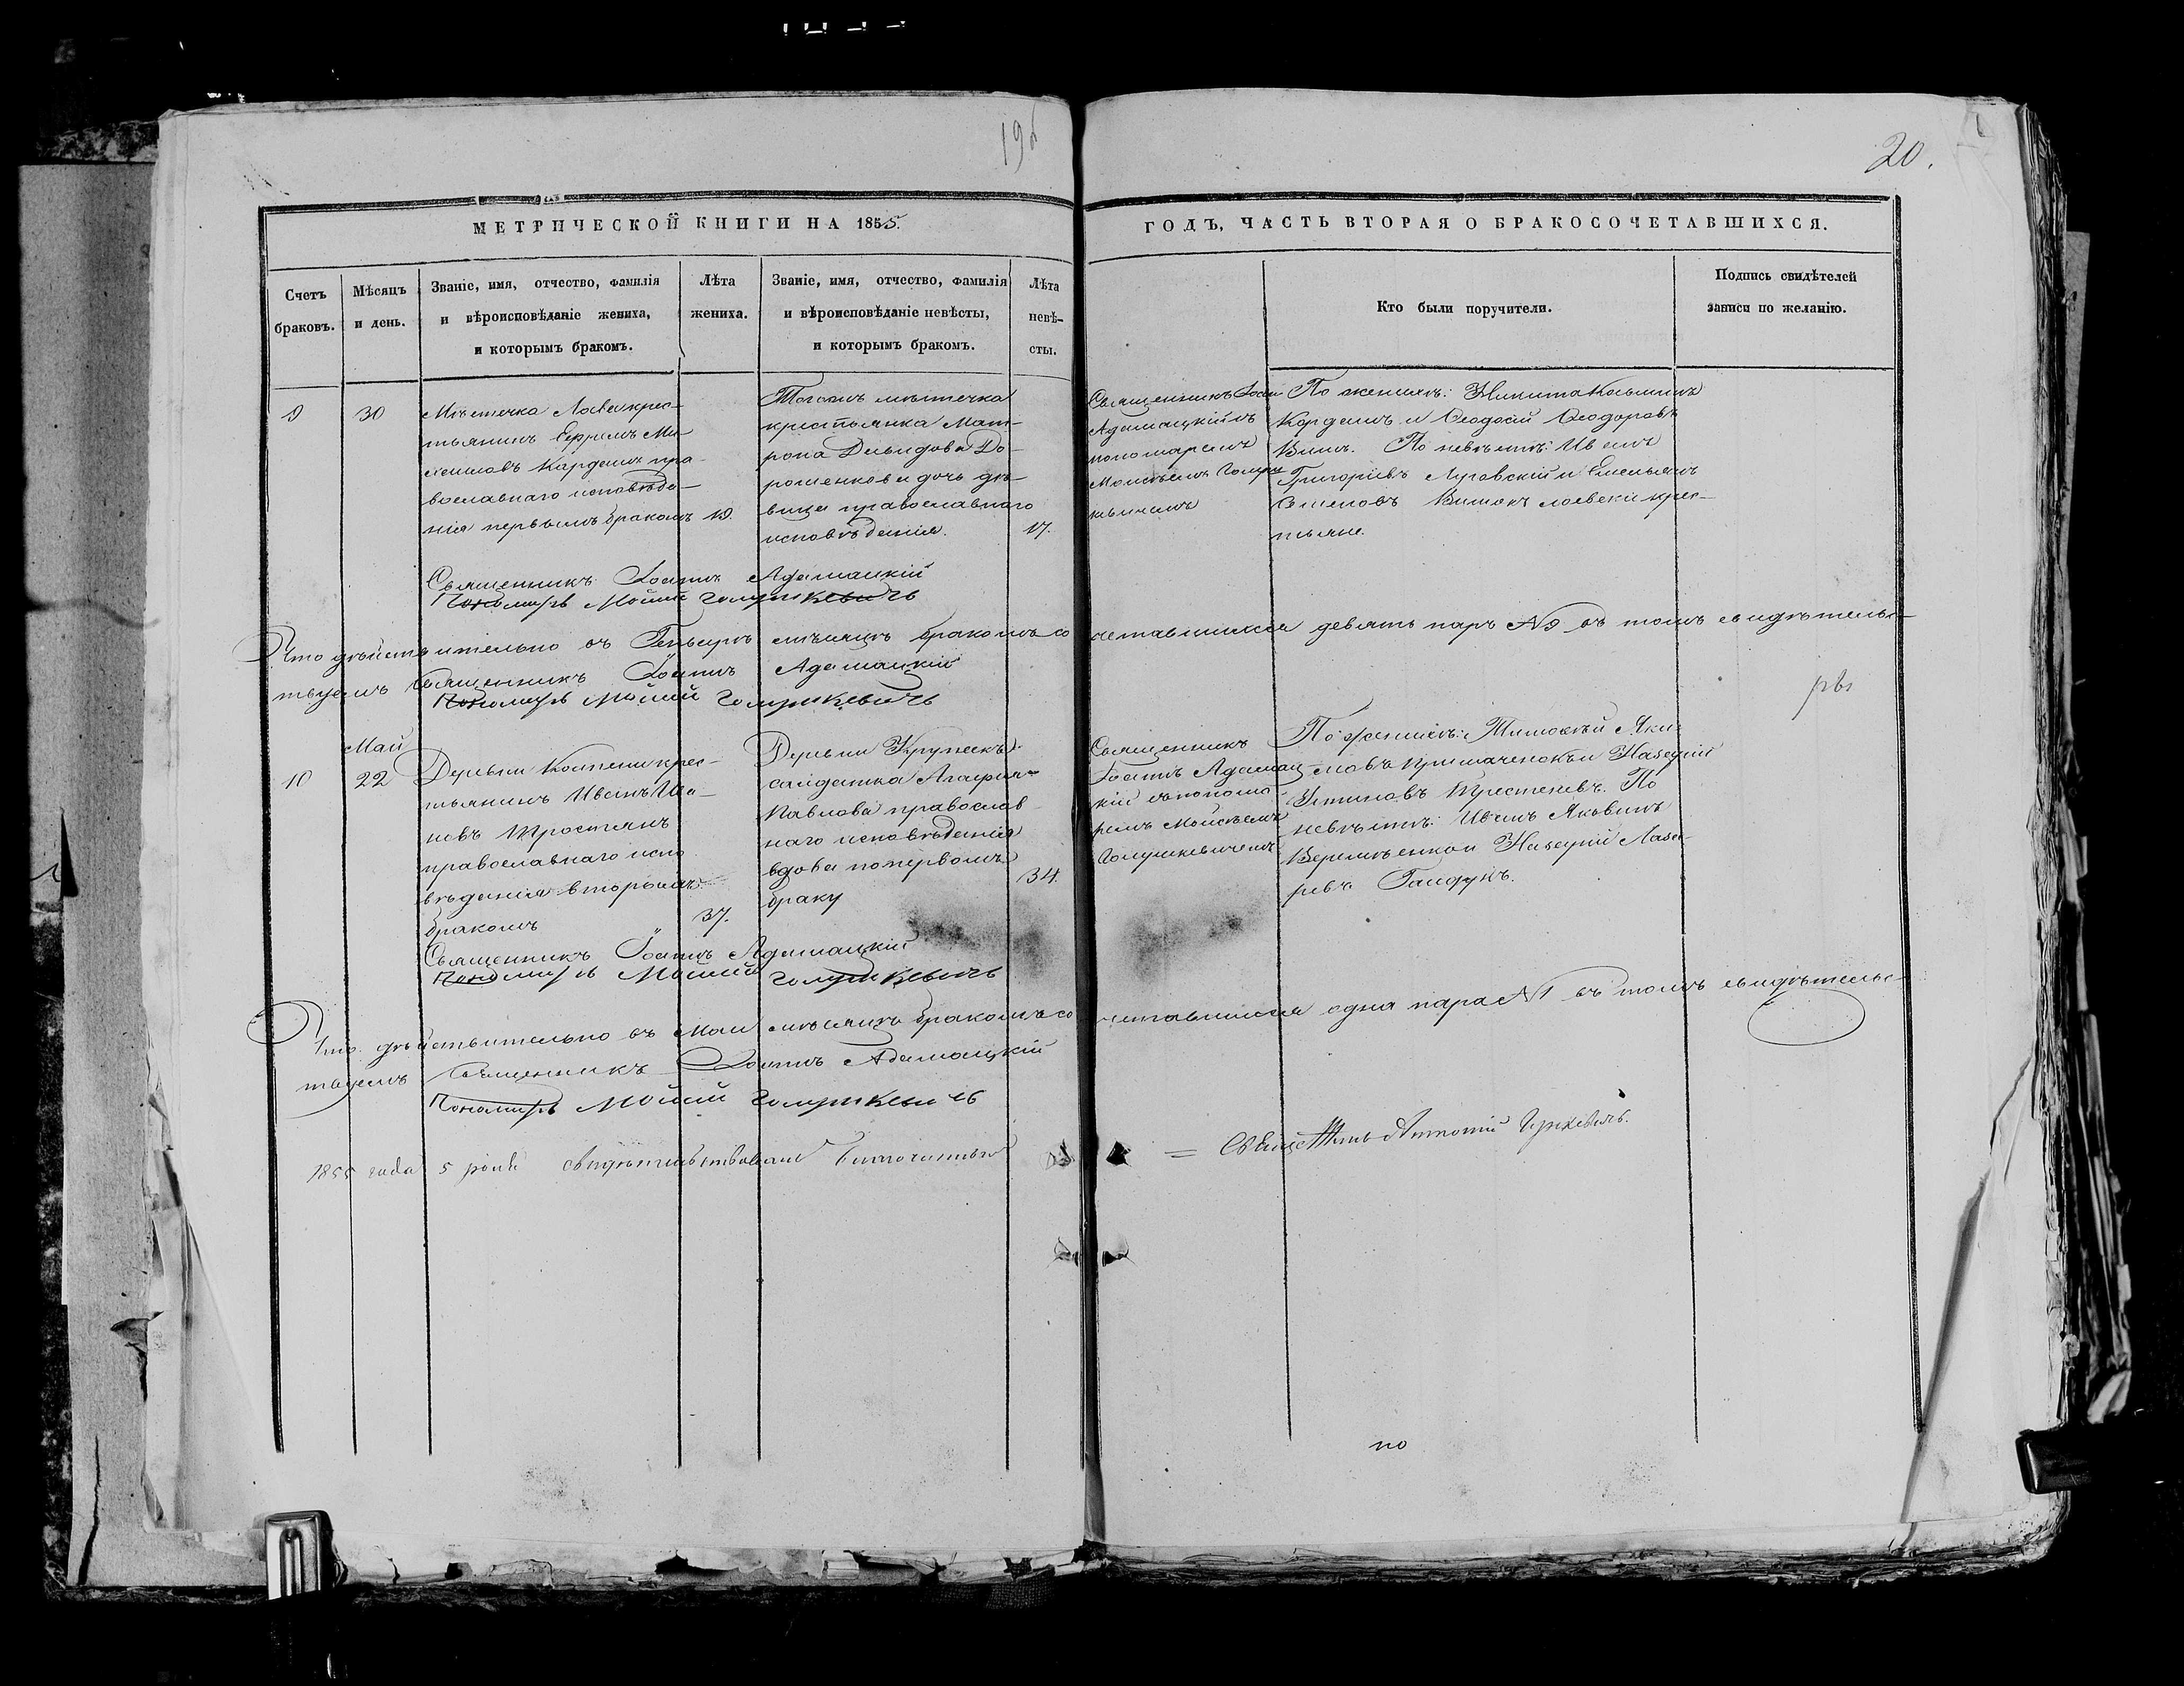 19
20.
МЕТРИЧЕСКОЙ КНИГИ НА 1855.
ГОДЪ, ЧАСТЬ ВТОРАЯ О БРАКОСОЧЕТАВШИХСЯ.
Счетъ
браковъ.
Мѣсяцъ
и день.
Званіе, имя, отчество, фамилія
и вѣроисповѣданіе жениха,
и которымъ бракомъ.
Лѣта
жениха.
Званіе, имя, отчество, фамилія
и вѣроисповѣданіе невѣсты,
и которымъ бракомъ.
Лѣта
невѣ-
сты.
Кто были поручители.
Подпись свидѣтелей
записи по желанію.
9
30
Мѣстечка Лоева крес-
тьянинъ Ефремъ Ми-
Карденъ пра-
вославнаго исповѣда-
нія первымъ бракомъ
19.
Тогожъ мѣстечка
крестьянка Мат-
рона Давидова До-
рошенкова дочь дѣ-
вица православнаго
исповѣданія.
17.
Священникъ Іоан
Адамацкій съ
пономаремъ
Моисѣемъ Голуш
кевичемъ
По женихѣ: Никита Козьминъ
Карденъ и Ѳеодосій Ѳеодоровъ
По невѣстѣ: Иванъ
Григоріевъ и Емельянъ
лоевскіе крес-
тьяне.
Священникъ Іоаннъ Адамацкій
Пономарь Моисей Голушкевичъ
Что дѣйствительно въ Генварѣ мѣсяцѣ бракомъ со
четавшихся девять паръ №9 въ томъ свидѣтельс-
твуемъ Священникъ Іоаннъ Адамацкій
Пономарь Моисей Голушкевичъ
Май
10
22
Деревни Колпени крес-
тьянинъ Иванъ Ива-
новъ Тростянъ
православнаго испо
вѣданія вторымъ
бракомъ
37.
Деревни Крупекъ
салдатка Агафія
Павлова православ
наго исповѣданія
вдова по первомъ
браку
34.
Священникъ
Іоаннъ Адамац
кій съ понома
ремъ Моисѣемъ
Голушкевичемъ
По женихѣ: Тимофѣй Яки-
мовъ Примаченокъ и
По
невѣстѣ: Иванъ Яковлевъ
Веремѣенко и Лаза-
ревъ Гайдукъ.
Священникъ Іоаннъ Адамацкій
Пономарь Моисей Голушкевичъ
Что дѣйствительно въ Маи мѣсяцѣ бракомъ со
четавшихся одна пара №1 въ томъ свидѣтельс-
твуемъ Священникъ Іоаннъ Адамацкій
Пономарь Моисей Голушкевичъ
1855 года 5 свидѣтельствовалъ Благочинный
= Священникъ Антоній
по